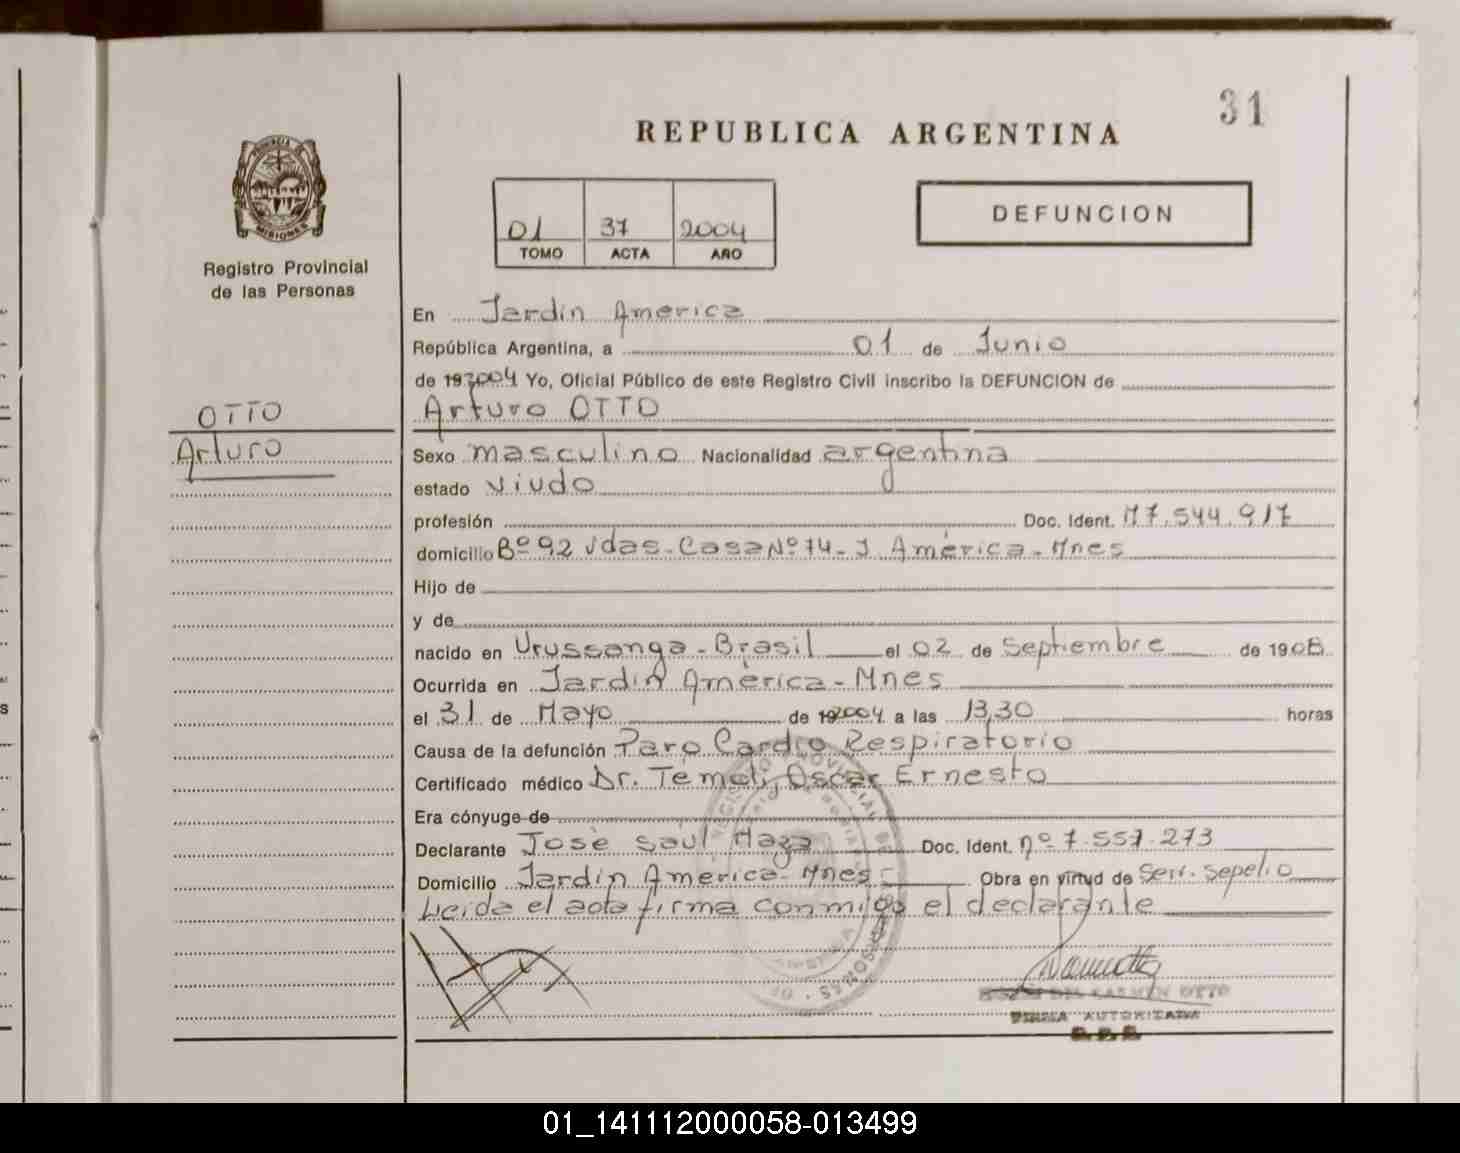 31
REPUBLICA ARGENTINA
PROVINCIA DE
MISIONES
Registro Provincial
de las Personas
01 37 2004
TOMO ACTA AÑO
DEFUNCION
OTTO
Arturo
En Jardin America
República Argentina, a 01 de Junio
de 192004 Yo, Oficial Público de este Registro Civil inscribo la DEFUNCION de
Arturo OTTO
Sexo masculino Nacionalidad argentina
estado viudo
profesión Doc. Ident. M7.544.917
domicilio Bº 92 Vdas-Casa Nº 14-J América-Mnes
Hijo de
y de
nacido en Urussanga-Brasil el 02 de Septiembre de 1908
Ocurrida en Jardin América-Mnes
el 31 de Mayo de 192004 a las 13,30 horas
Causa de la defunción Paro Cardio Respiratorio
Certificado médico Dr. Temoli, Oscar Ernesto
Era cónyuge de
Declarante José Saúl Maza Doc. Ident. nº 7.557.273
Domicilio Jardin America-Mnes Obra en virtud de Serv. Sepelio
Leida el acta firma conmigo el declarante
DEL CARMEN OTTO
FIRMA AUTORIZADA
01_141112000058-013499